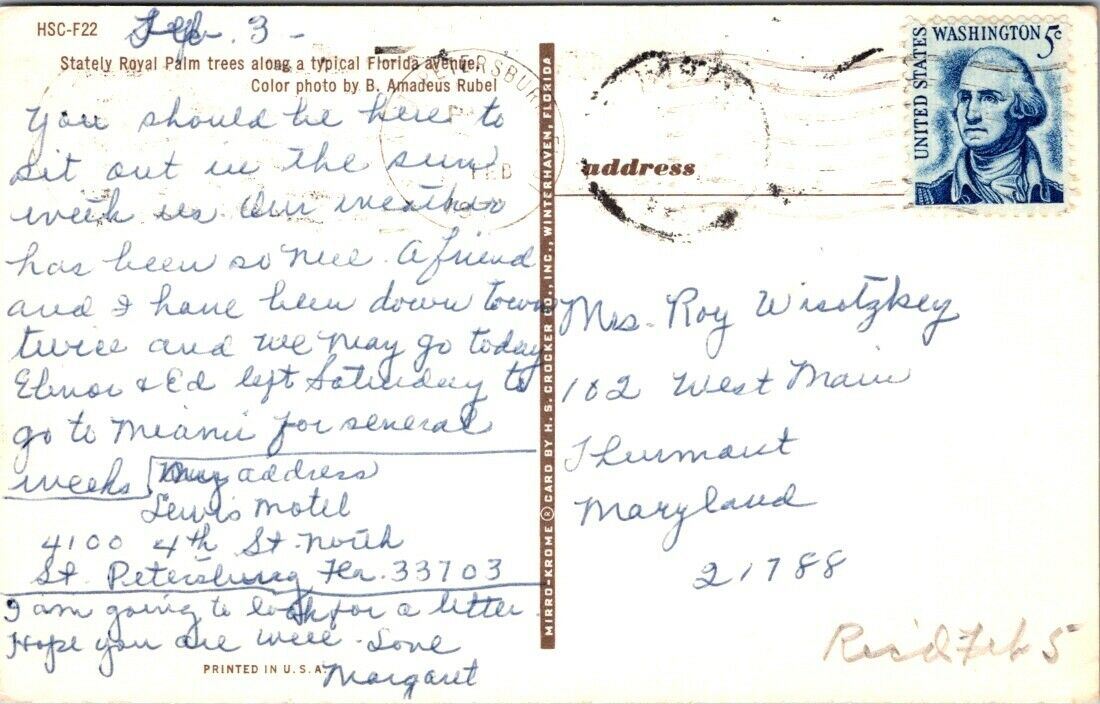 HSC-F22
Feb. 3 -
Stately Royal Palm trees along a typical Florida avenue.
Color photo by B. Amadeus Rubel
You should be here to
sit out in the sun
with us. Our weather
has been so nice. A friend
and I have been down town
twice and we may go today
Elinor & Ed left Saturday to
go to Miami for several
weeks
My address
Lewis Motel
4100 4th St. North
St. Petersburg Fla. 33703
I am going to look for a letter.
Hope you are well - Love
Margaret
PRINTED IN U.S.A.
MIRRO-KROME ® CARD BY H. S. CROCKER CO., INC., WINTERHAVEN, FLORIDA
PETERSBUR
FEB
address
UNITED STATES
WASHINGTON 5c
Mrs. Roy Wisotzkey
102 West Main
Thurmont
Maryland
21788
Rec'd Feb 5